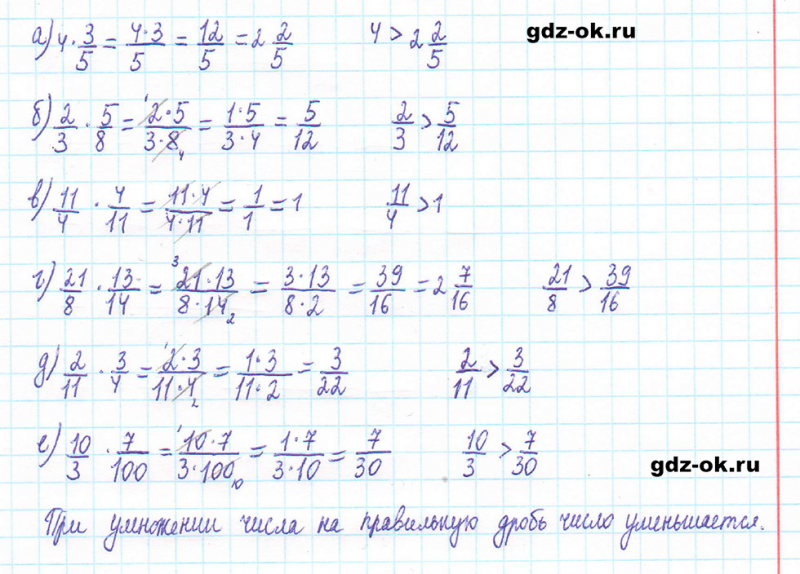 а) 4 · 3/5 = 4·3/5 = 12/5 = 2 2/5 4 > 2 2/5
gdz-ok.ru
б) 2/3 · 5/8 = 2·5/3·8 = 1·5/3·4 = 5/12 2/3 > 5/12
в) 11/4 · 4/11 = 11·4/4·11 = 1/1 = 1 11/4 > 1
г) 21/8 · 13/14 = 21·13/8·14 = 3·13/8·2 = 39/16 = 2 7/16 21/8 > 39/16
д) 2/11 · 3/4 = 2·3/11·4 = 1·3/11·2 = 3/22 2/11 > 3/22
е) 10/3 · 7/100 = 10·7/3·100 = 1·7/3·10 = 7/30 10/3 > 7/30
gdz-ok.ru
При умножении числа на правильную дробь число уменьшается.